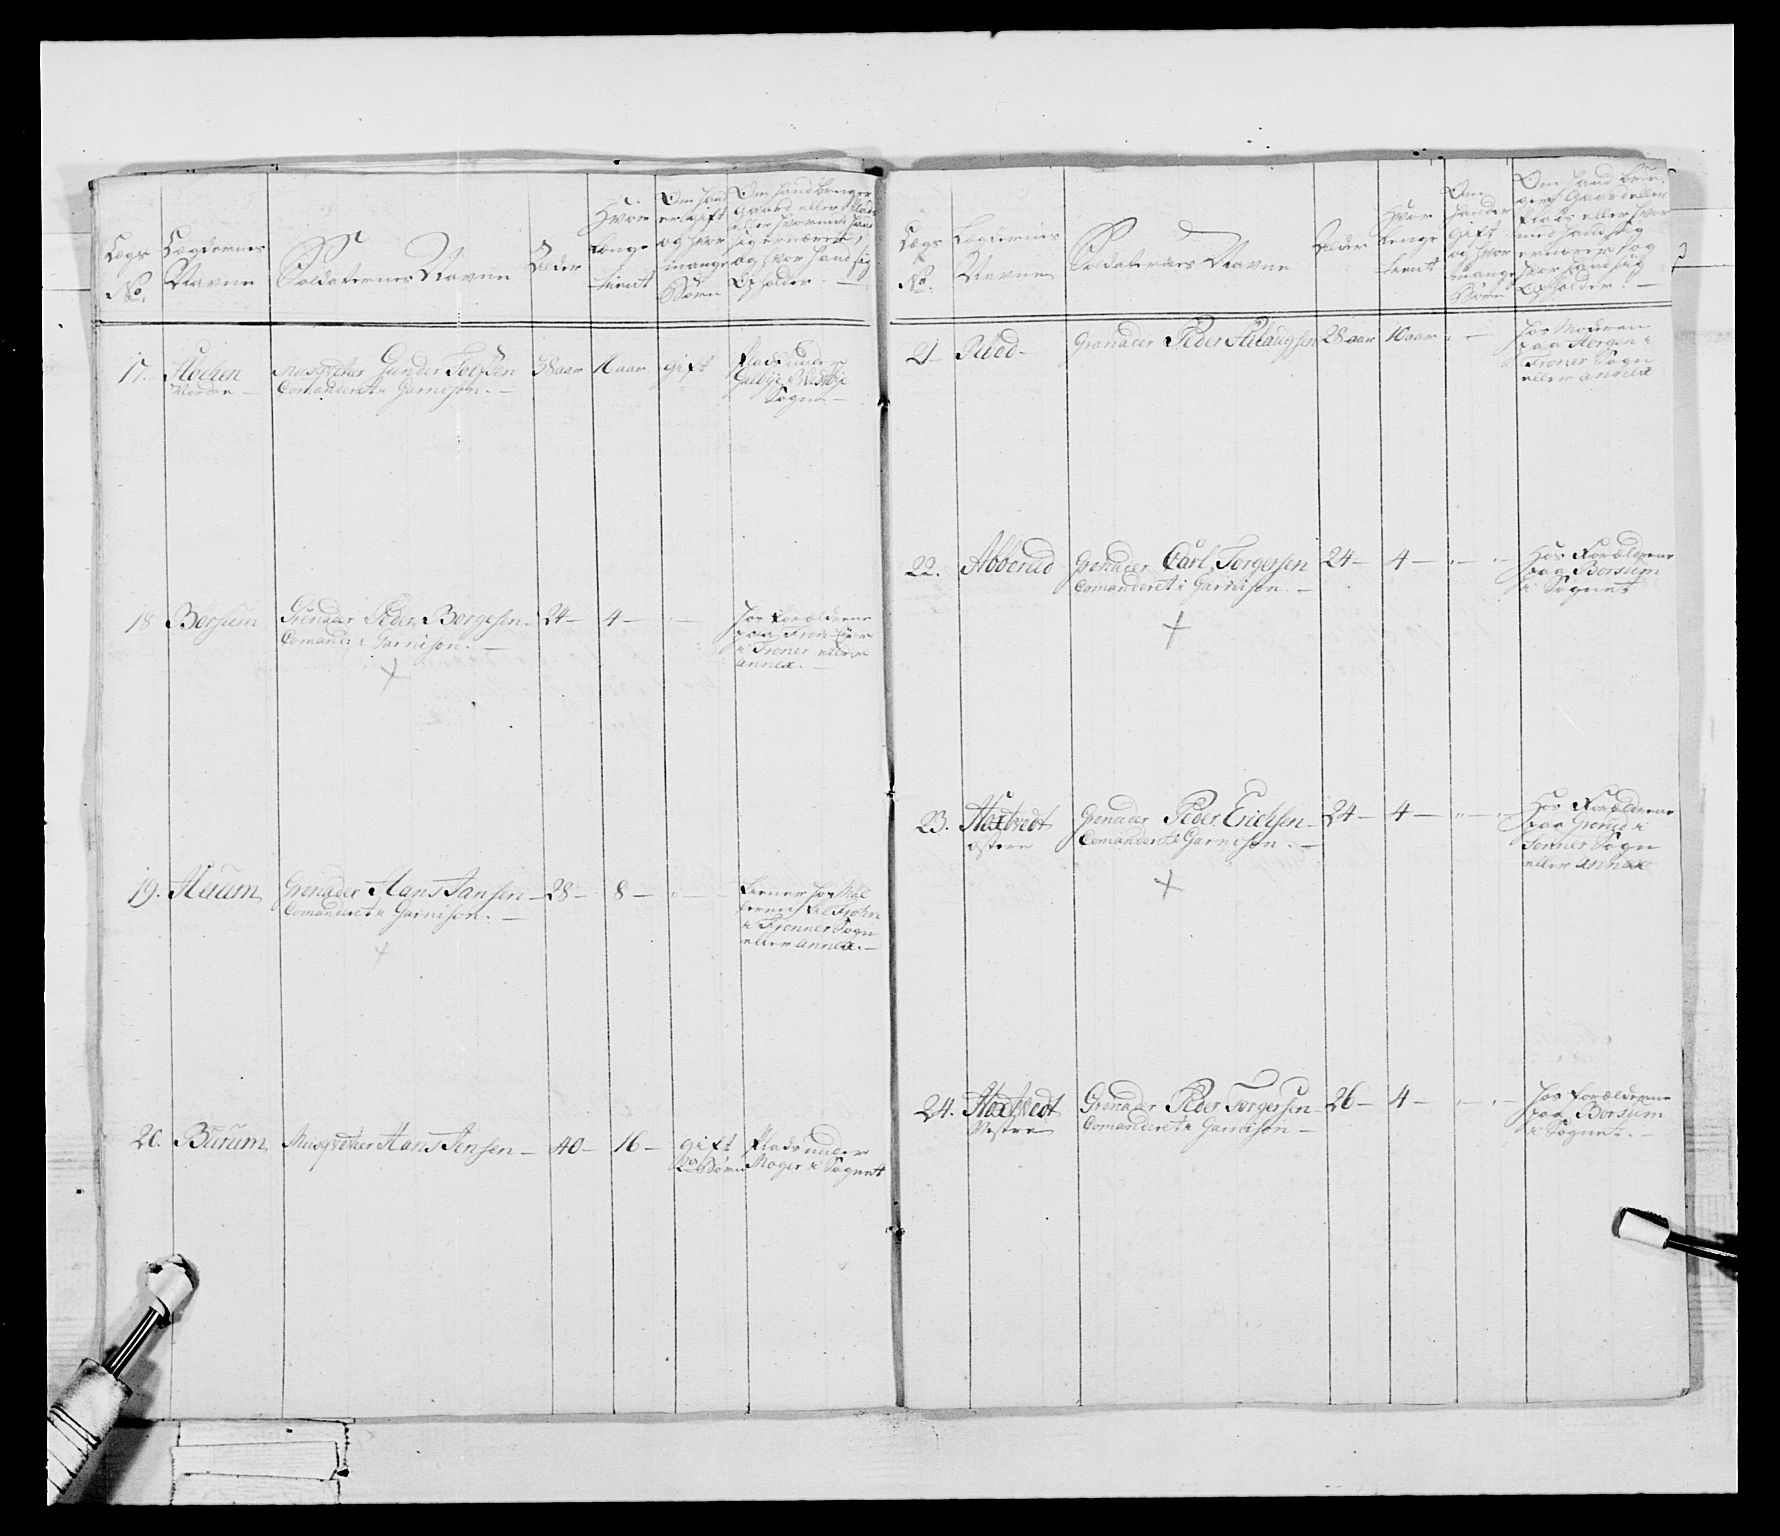 Lægs
No.
Lægdernes
Navne
Soldaternes Navne
Alder
Hvor
længe
tient
Om hand
er gift
og hvor
mange
Børn
Om hand bruger
Gaard eller Plads
eller hvormed hand
sig ernærer,
og hvor hand sig
Opholder. —
17.
Nordre —
Musqveter Gunder
Comanderet i Garnison. —
38 aar
gift
Plads under
Sogn. —
18
Børsum
Grenader Peder Borgesen —
Comand: i Garnison. —
24 —
4 —
hos Forældrene
paa
i Froner eller
annex. —
19.
Grenader Hans Jansen —
Comanderet i Garnison. —
28 —
8 —
tiener hos
i Fronner Sogn
eller annex. —
20.
Burum
Musqveter Hans Jensen —
40 —
16 —
gift
Børn
Plads under
Moger i Sognet
Lægs
No.
Lægdernes
Navne
Soldaternes Navne
Alder
Hvor
lenge
tient
Om
hand er
gift
og hvor
mange
Børn
Om hand bru-
ger Gaard eller
Plads eller hvor
med hand sig
ernærer og
hvor hand sig
Opholder. —
21
Grenader Peder
28 aar
10 aar
hos Moderen
paa
Froner Sogn
eller annex
22.
Abberud
Grenader Carl Torgersen
Comanderet i Garnison. —
24 —
4 —
Hos Forældrene
paa Borsum
i Sognet
23.
østere
Grenader Peder Erichsen —
Comanderet i Garnison. —
24 —
4 —
Hos Forældrene
paa
Fonner Sogn
eller annex
24.
Vestre
Grenader Peder Torgersen —
Comanderet i Garnison —
26 —
4 —
hos Forældrene
paa Borsum
i Sognet. —